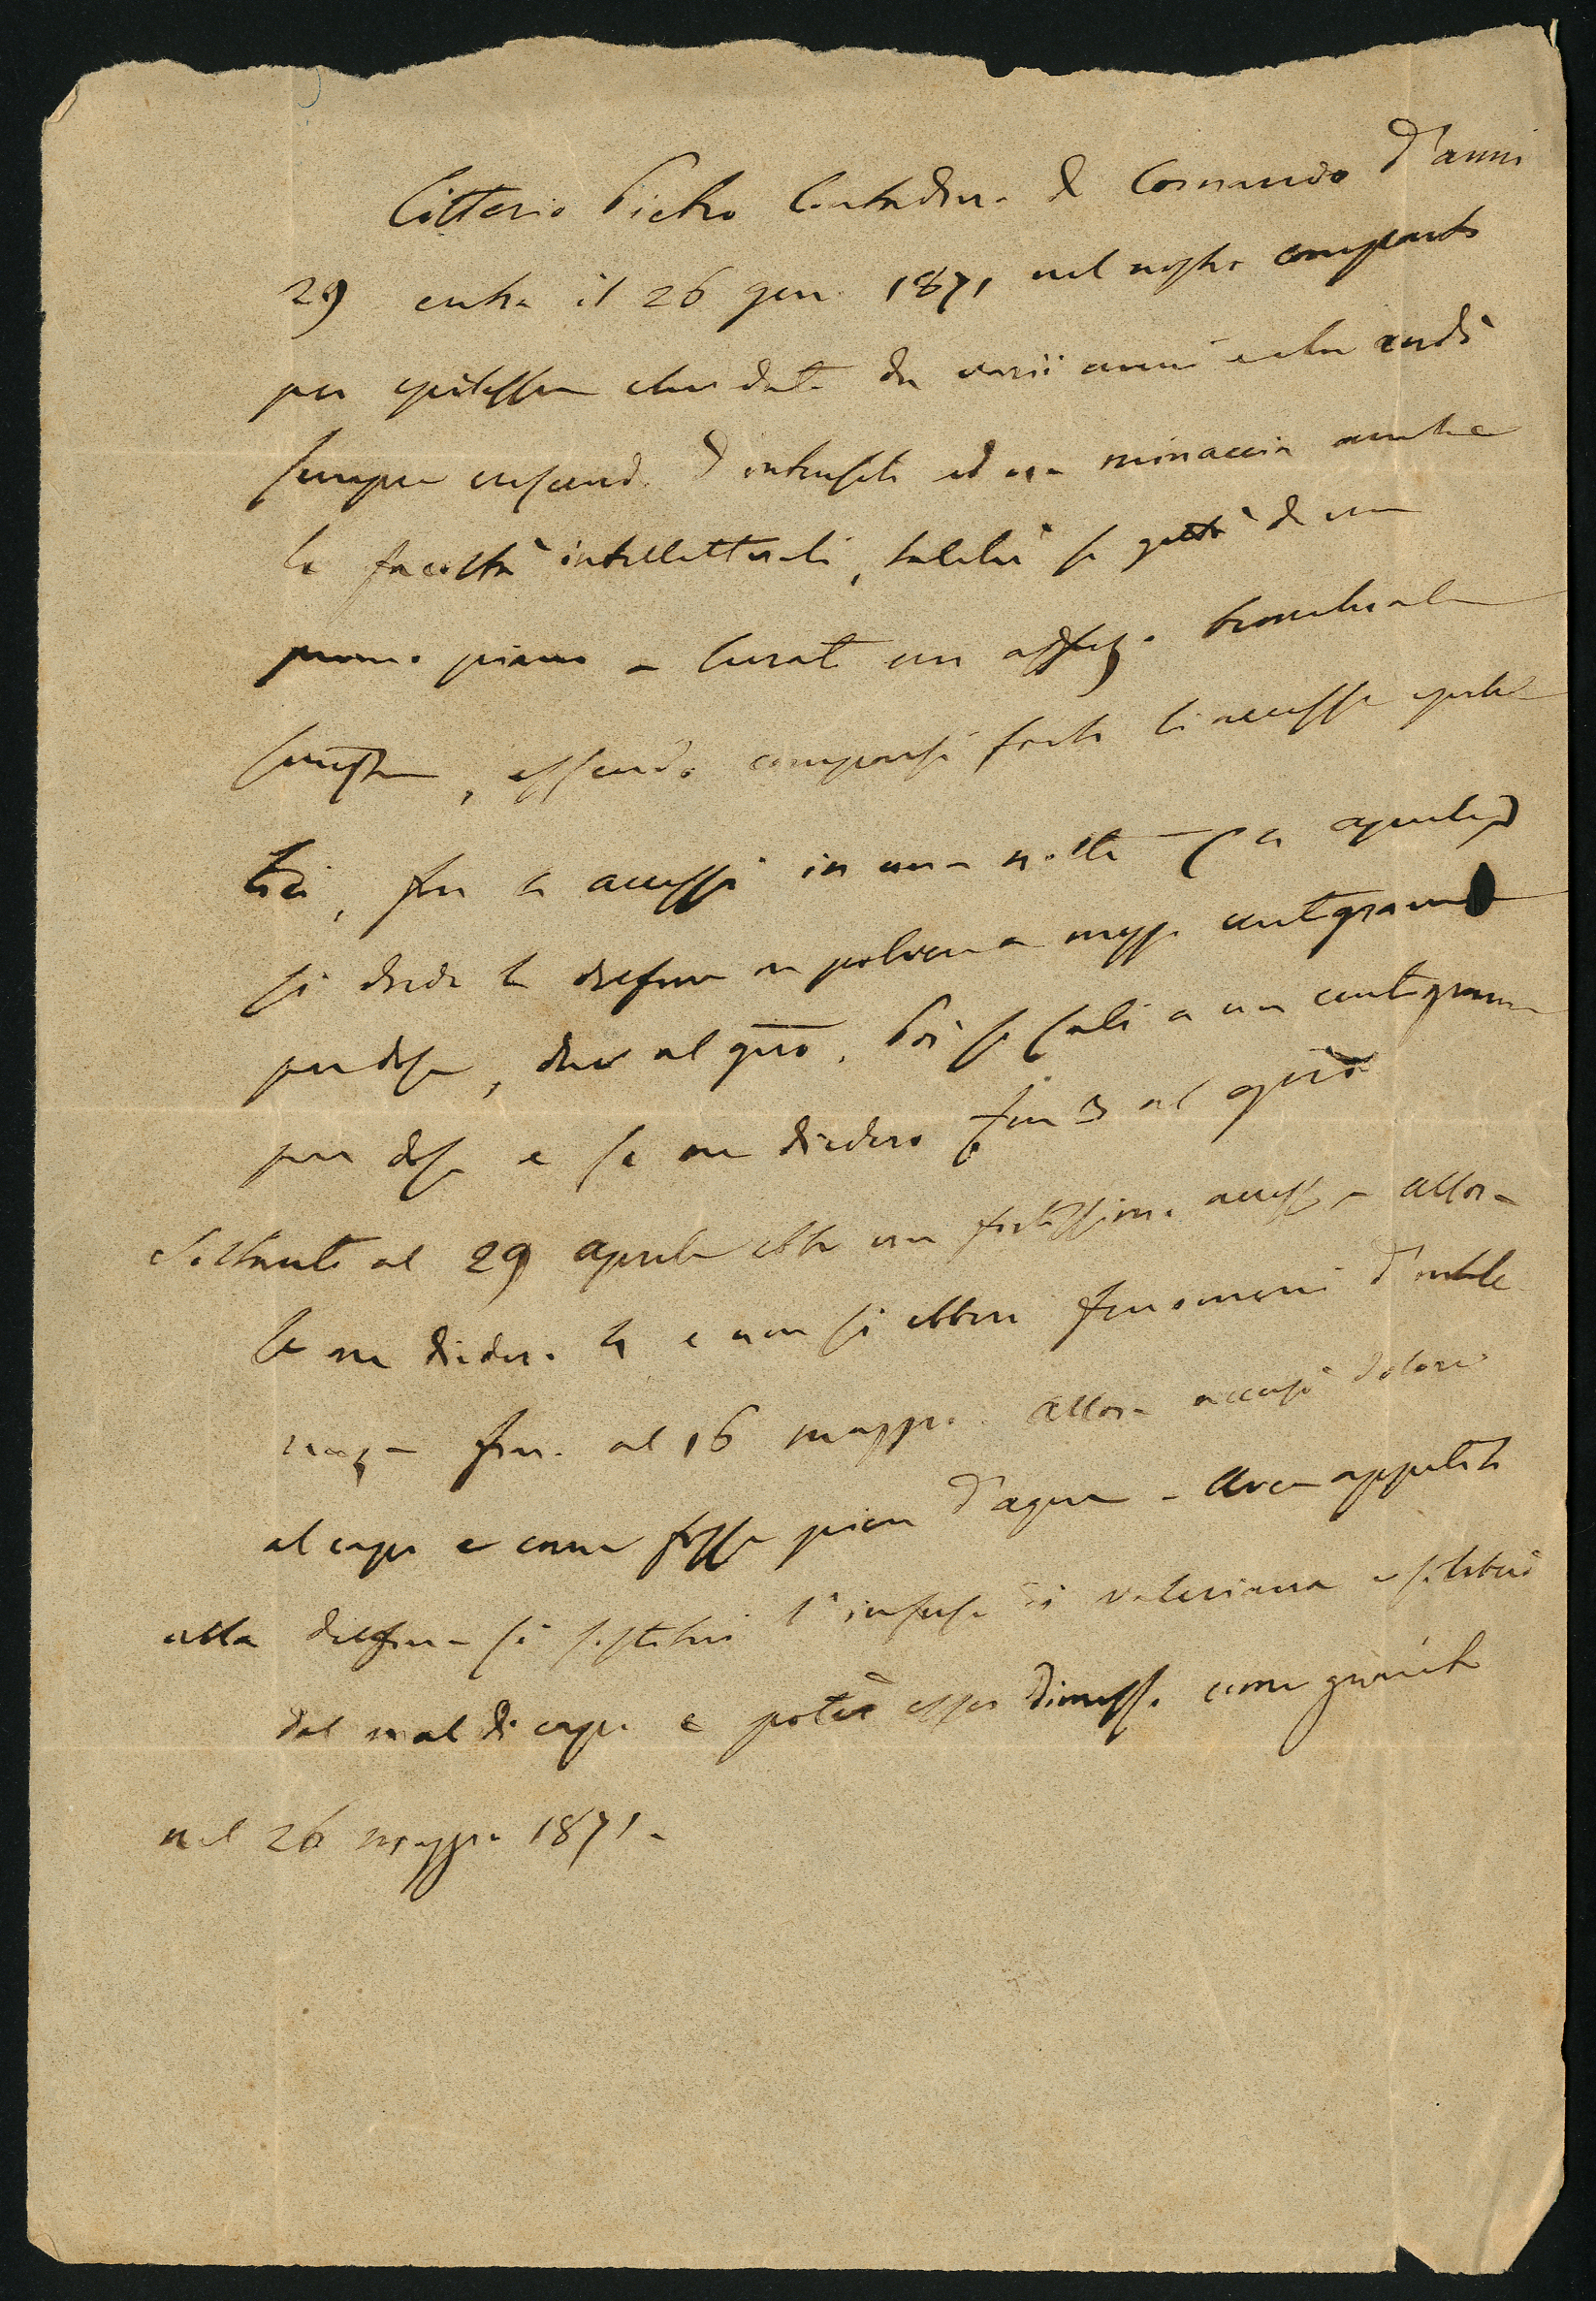 Citterio Pietro Contadino di Cornaredo d'anni
29 entra il 26 gen. 1871 nel nostro comparto
per epilessia che data da varii anni e che andò
sempre crescendo d'intensità ed ora minaccia anche
le facoltà intellettuali, talchè si gettò da un
primo piano - Curato un affez.
sinistra, essendo comparsi forti li accessi epilet
tici, fin 4 accessi in una notte (2 aprile)
si diede la delfina in polvere a mezzo centigrammo
per dose, due al giro. Poi si salì a un centigrammo
per dose e se ne diedero fin 3 al giro
Soltanto al 29 aprile ebbe un fortissimo accesso allora
se ne diedero 4 e non si ebbero fenomeni d'intolle
ranza fino al 16 maggio. Allora accusò dolori
al capo e come fosse pieno d'acqua - Avea appetito
alla delfina si sostituì l'infuso di valeriana e
dal mal di capo e potè esser dimesso come guarito
nel 26 maggio 1871 -